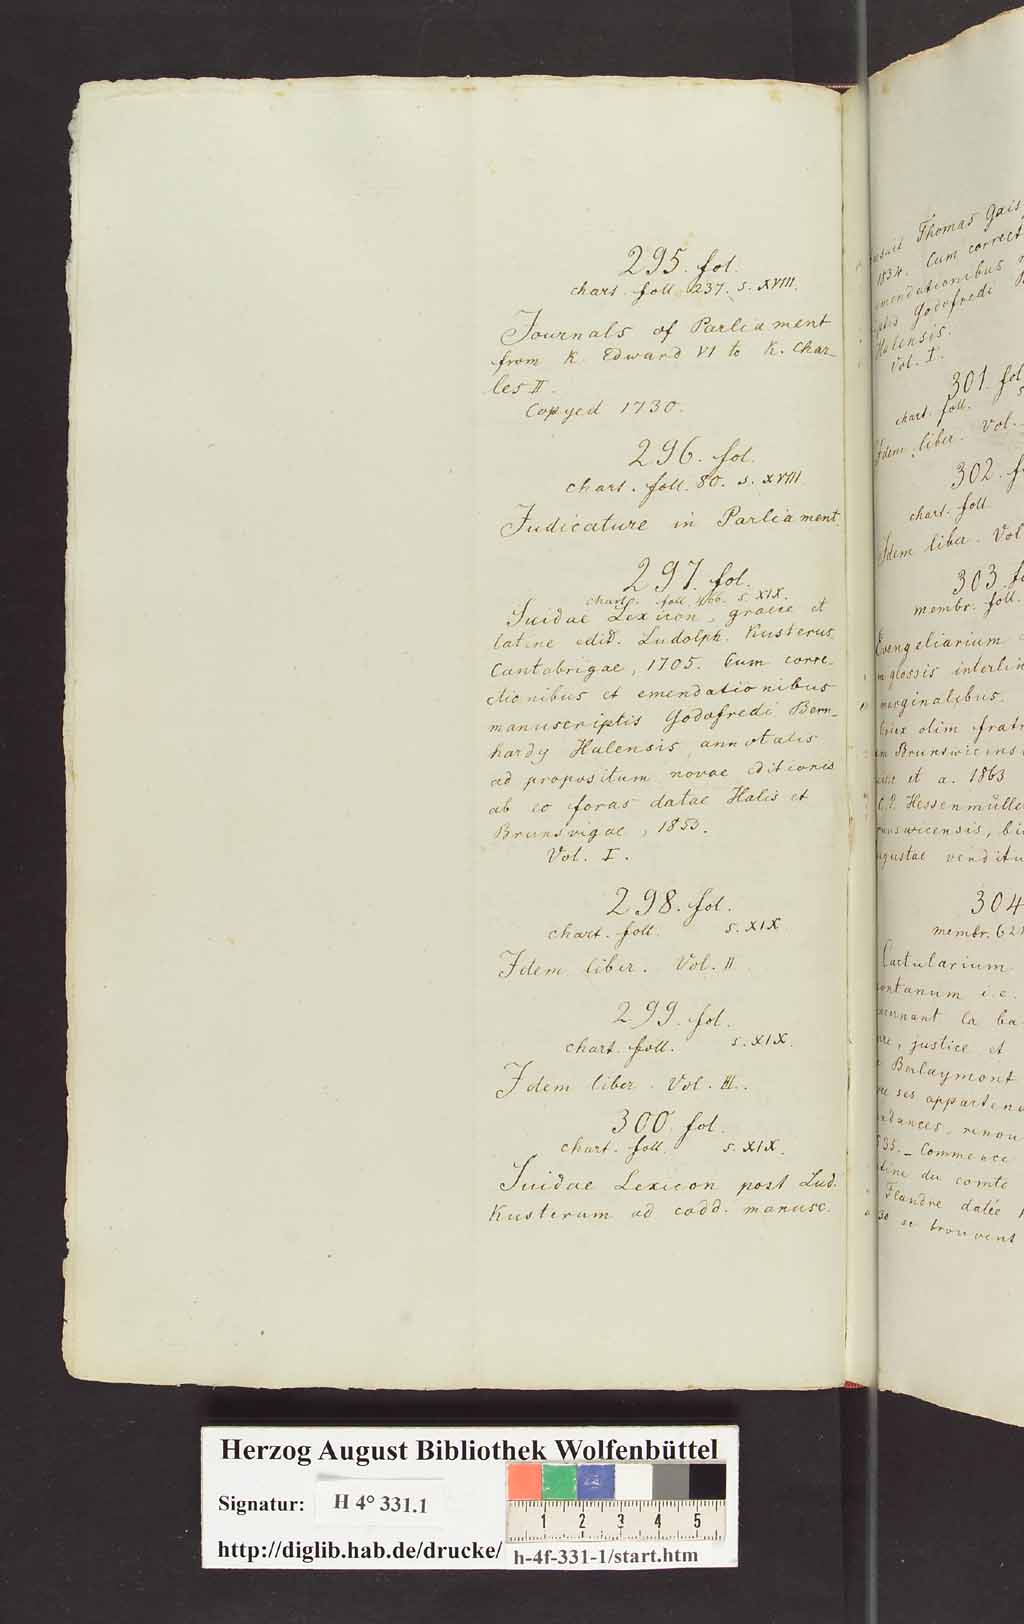 295. fol.
chart. foll. 237. s. XVIII.
Journals of Parliament
from K. Edward VI to K. Char-
les II.
Copyed 1730.
296. fol.
chart. foll. 80. s. XVIII
Judicature in Parliament.
297. fol.
chart. foll. 466. s. XIX.
Suidae Lexicon, graece et
latine edid. Ludolph. Kusterus
Cantabrigae, 1705. Cum corre-
ctionibus et emendationibus
manuscriptis Godofredi Bern-
hardy Halensis annotatis
ad propositum novae editionis
ab eo foras datae Halis et
Brunsvigae, 1853.
Vol. I.
298. fol.
chart. foll. s. XIX
Idem liber. Vol. II
299. fol.
chart. foll. s. XIX.
Idem liber. Vol. III.
300. fol.
chart. foll. s. XIX.
Suidae Lexicon post Lud.
Kusterum ad codd. manusc.
Thomas Gais
1834. Cum correct
Godofredi
Halensis.
Vol. I.
301. fol
chart. foll.
Idem liber. Vol.
302. f
chart. foll.
Idem liber. Vol
303. fo
membr. foll.
Evengeliarium
glossis interlin
marginalibus.
olim frat
Brunswicens
et a. 1863
C. P. Hessenmülle
vendit
304
membr. 621
Cartularium
i. e.
la ba
justice et
Berlaymont
ses apparten
renou
Commence
du comte
Flandre datée
se trouvent
Herzog August Bibliothek Wolfenbüttel
Signatur: H 4° 331.1
1 2 3 4 5
http://diglib.hab.de/drucke/ h-4f-331-1/start.htm